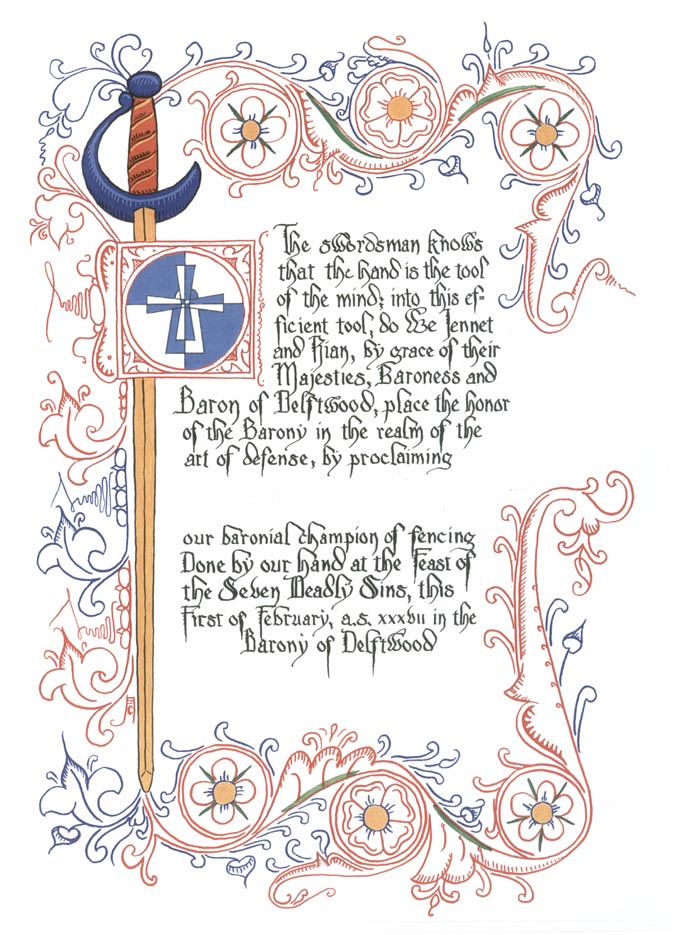 The swordsman knows
that the hand is the tool
of the mind; into this ef-
ficient tool, do We Jennet
and Rian, by grace of their
Majesties, Baroness and
Baron of Delftwood, place the honor
of the Barony in the realm of the
art of defense, by proclaiming
our baronial champion of fencing
Done by our hand at the Feast of
the Seven Deadly Sins, this
First of February, a.s. xxxvii in the
Barony of Delftwood